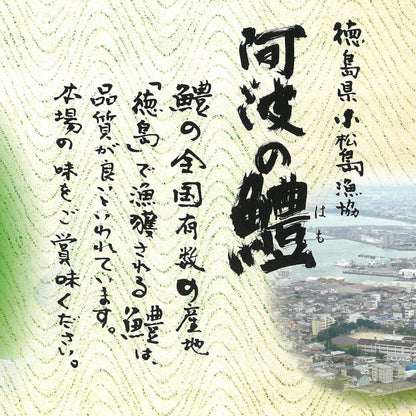 徳島県小松島漁協
阿波の鱧
はも
鱧の全国有数の産地
「徳島」で漁獲される鱧は、
品質が良いといわれています。
本場の味をご賞味ください。